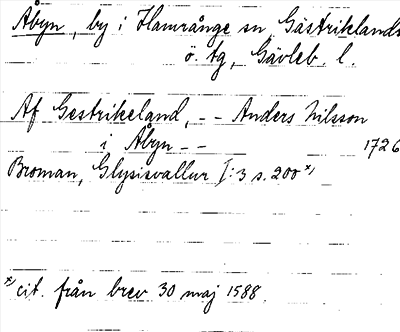 Åbyn, by i Hamrånge sn, Gästriklands
ö. tg, Gävleb. l.
Af Gestrikeland, -- Anders Nilsson
i Åbyn --
1726
Broman, Glysisvallur I:3 s. 200 x)
x) cit. från brev 30 maj 1588.